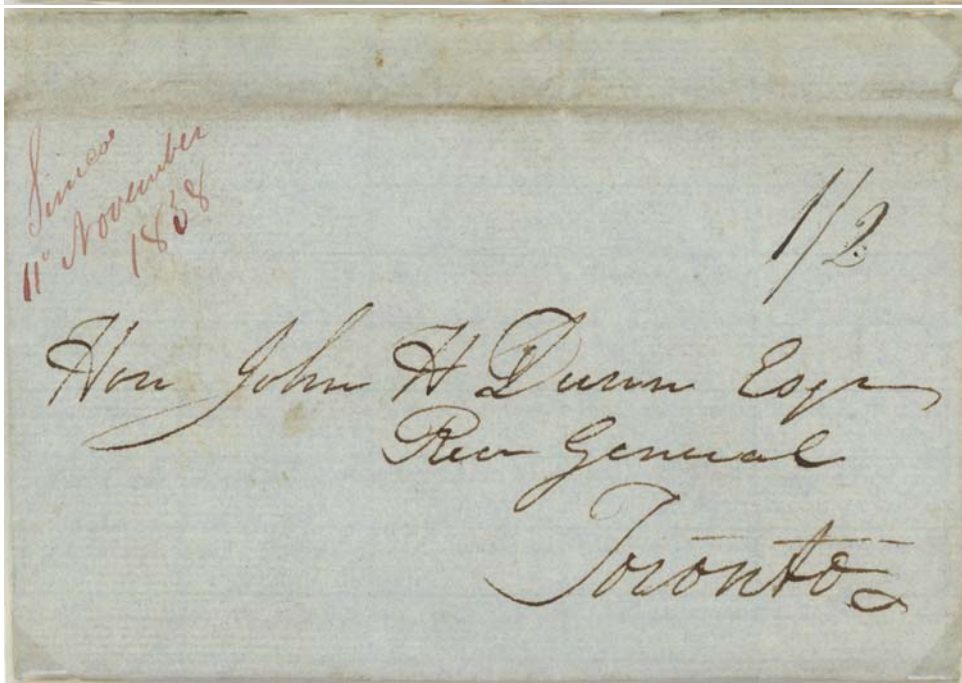 Simcoe
11° November
1838
1/2
Hon John H Dunn Esqr
Recr General
Toronto